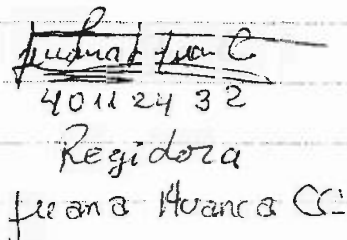 Juana C
40112432
Regidora
Juana Huanca CC